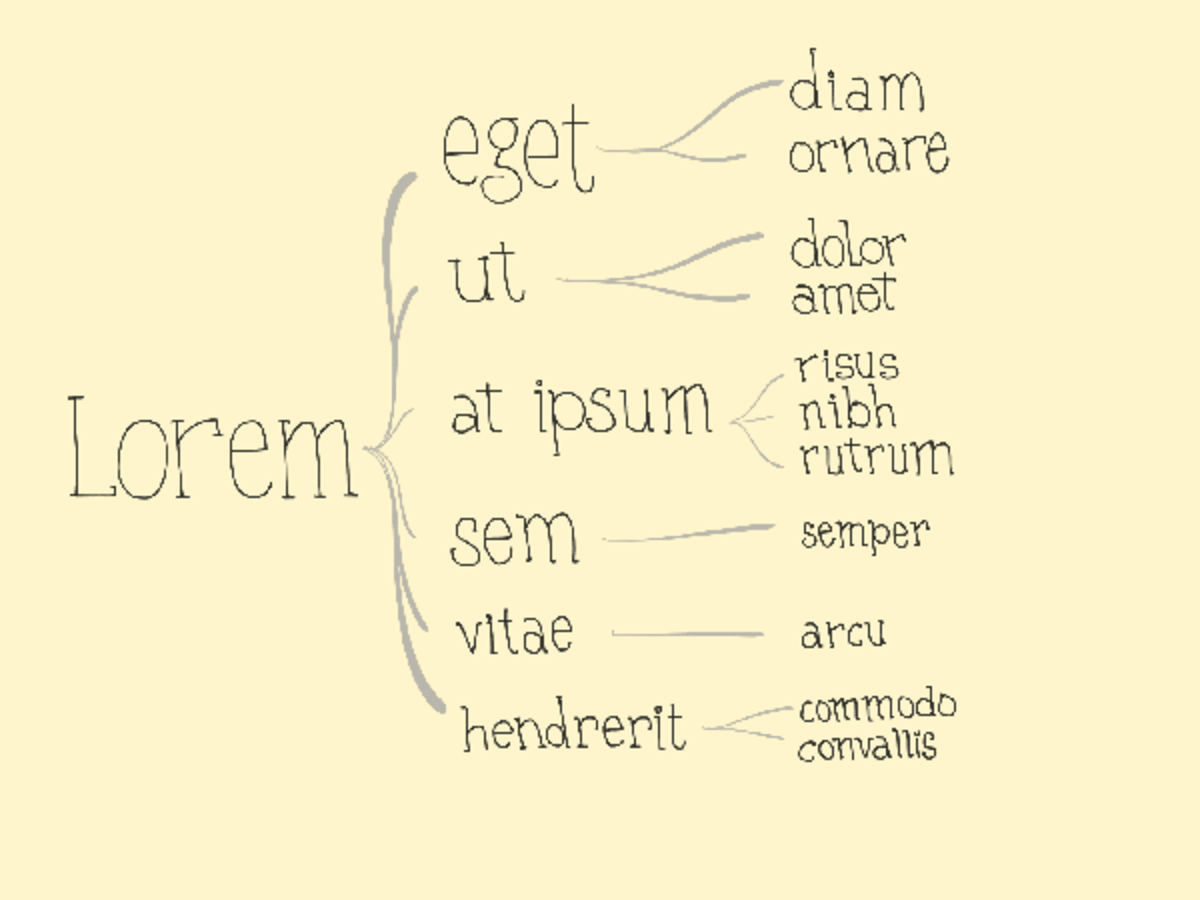 Lorem
eget
diam
ornare
ut
dolor
amet
at ipsum
risus
nibh
rutrum
sem
semper
vitae
arcu
hendrerit
commodo
convallis